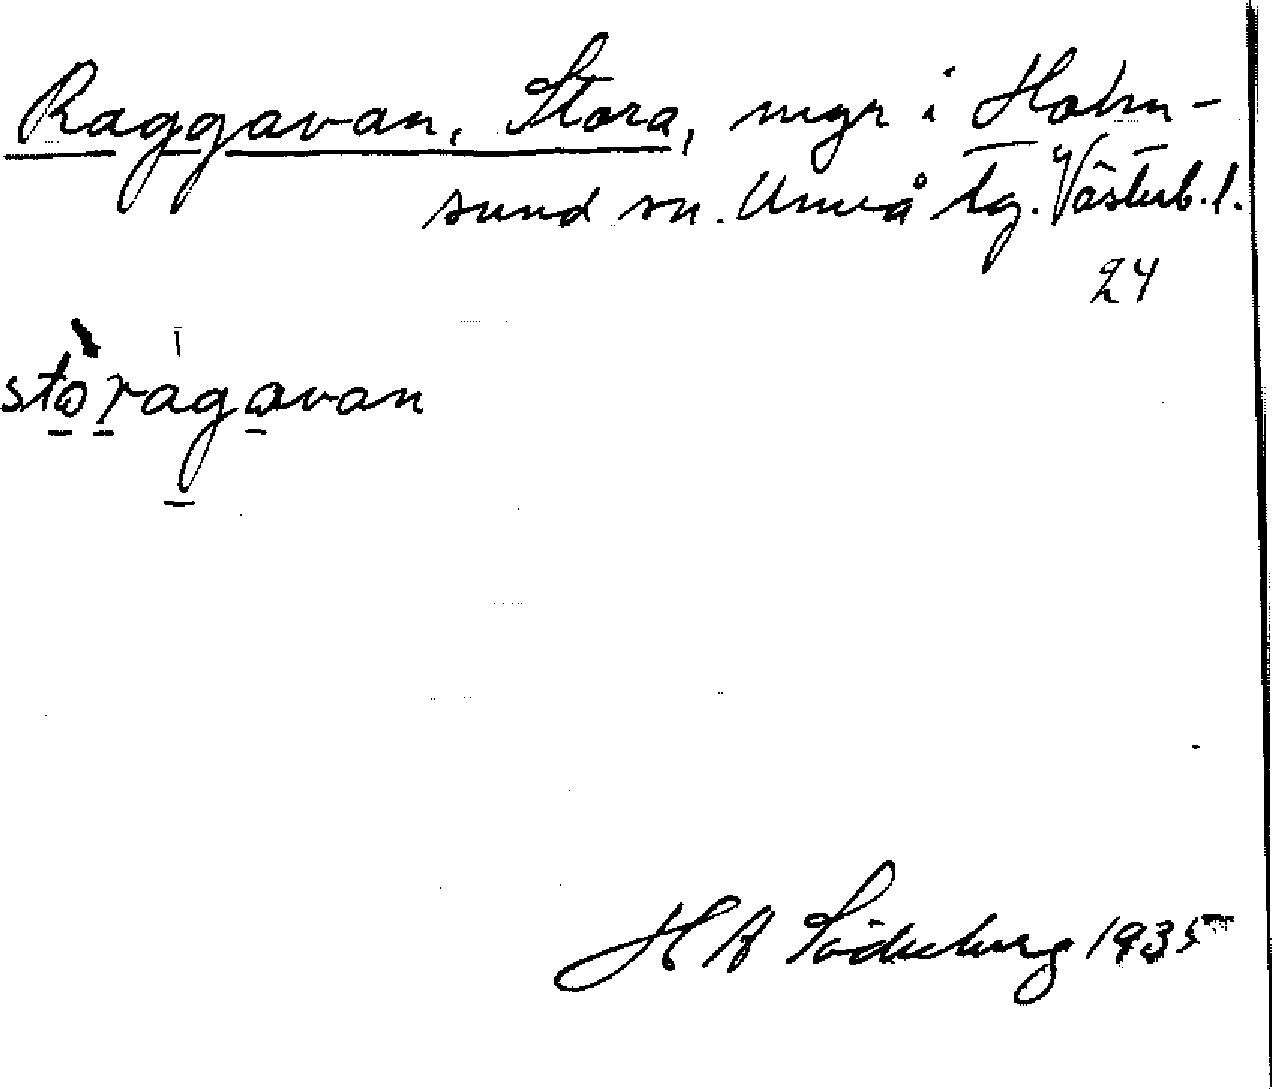 Raggavan, Stora, mgr i Holm-
sund sn. Umeå tg. Västerb. l.
24
stòrágavan
H A Söderberg 1935